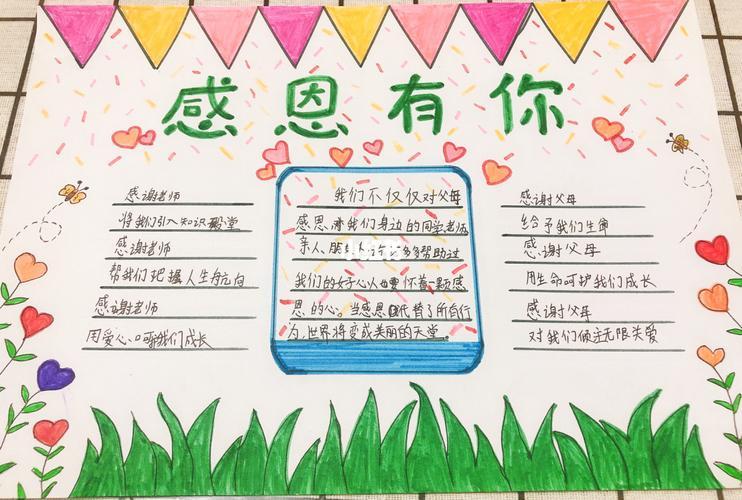 感恩有你
感谢老师
将我们引入知识殿堂
感谢老师
帮我们把握人生方向
感谢老师
用爱心呵我们成长
我们不仅仅对父母
感恩,对我们身边的同学老师
亲人、朋
多帮助过
我们的好心人也要怀着一颗感
恩的心。当感恩代替了所有行
为,世界将变成美丽的天堂。
感谢父母
给予我们生命
感谢父母
用生命呵护我们成长
感谢父母
对我们倾注无限关爱